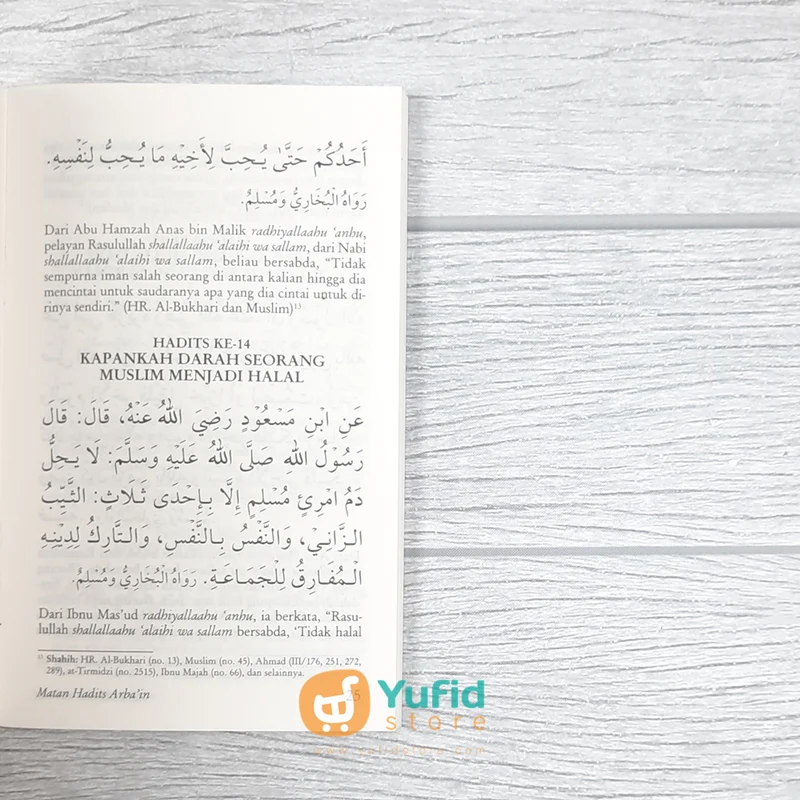 أَحَدُكُمْ حَتَّى يُحِبَّ لِأَخِيْهِ مَا يُحِبُّ لِنَفْسِهِ.
رَوَاهُ الْبُخَارِيُّ وَمُسْلِمٌ.
Dari Abu Hamzah Anas bin Malik radhiyallaahu ‘anhu,
pelayan Rasulullah shallallaahu ‘alaihi wa sallam, dari Nabi
shallallaahu ‘alaihi wa sallam, beliau bersabda, “Tidak
sempurna iman salah seorang di antara kalian hingga dia
mencintai untuk saudaranya apa yang dia cintai untuk di-
rinya sendiri.” (HR. Al-Bukhari dan Muslim)¹³
HADITS KE-14
KAPANKAH DARAH SEORANG
MUSLIM MENJADI HALAL
عَنِ ابْنِ مَسْعُوْدٍ رَضِيَ اللهُ عَنْهُ، قَالَ: قَالَ
رَسُوْلُ اللهِ صَلَّى اللهُ عَلَيْهِ وَسَلَّمَ: لَا يَحِلُّ
دَمُ امْرِئٍ مُسْلِمٍ إِلَّا بِإِحْدَى ثَلَاثٍ: الثَّيِّبُ
الزَّانِيْ، وَالنَّفْسُ بِالنَّفْسِ، وَالتَّارِكُ لِدِيْنِهِ
الْمُفَارِقُ لِلْجَمَاعَةِ. رَوَاهُ الْبُخَارِيُّ وَمُسْلِمٌ.
Dari Ibnu Mas’ud radhiyallaahu ‘anhu, ia berkata, “Rasu-
lullah shallallaahu ‘alaihi wa sallam bersabda, ‘Tidak halal
¹³ Shahih: HR. Al-Bukhari (no. 13), Muslim (no. 45), Ahmad (III/176, 251, 272,
289), at-Tirmidzi (no. 2515), Ibnu Majah (no. 66), dan selainnya.
Matan Hadits Arba’in
Yufid
store